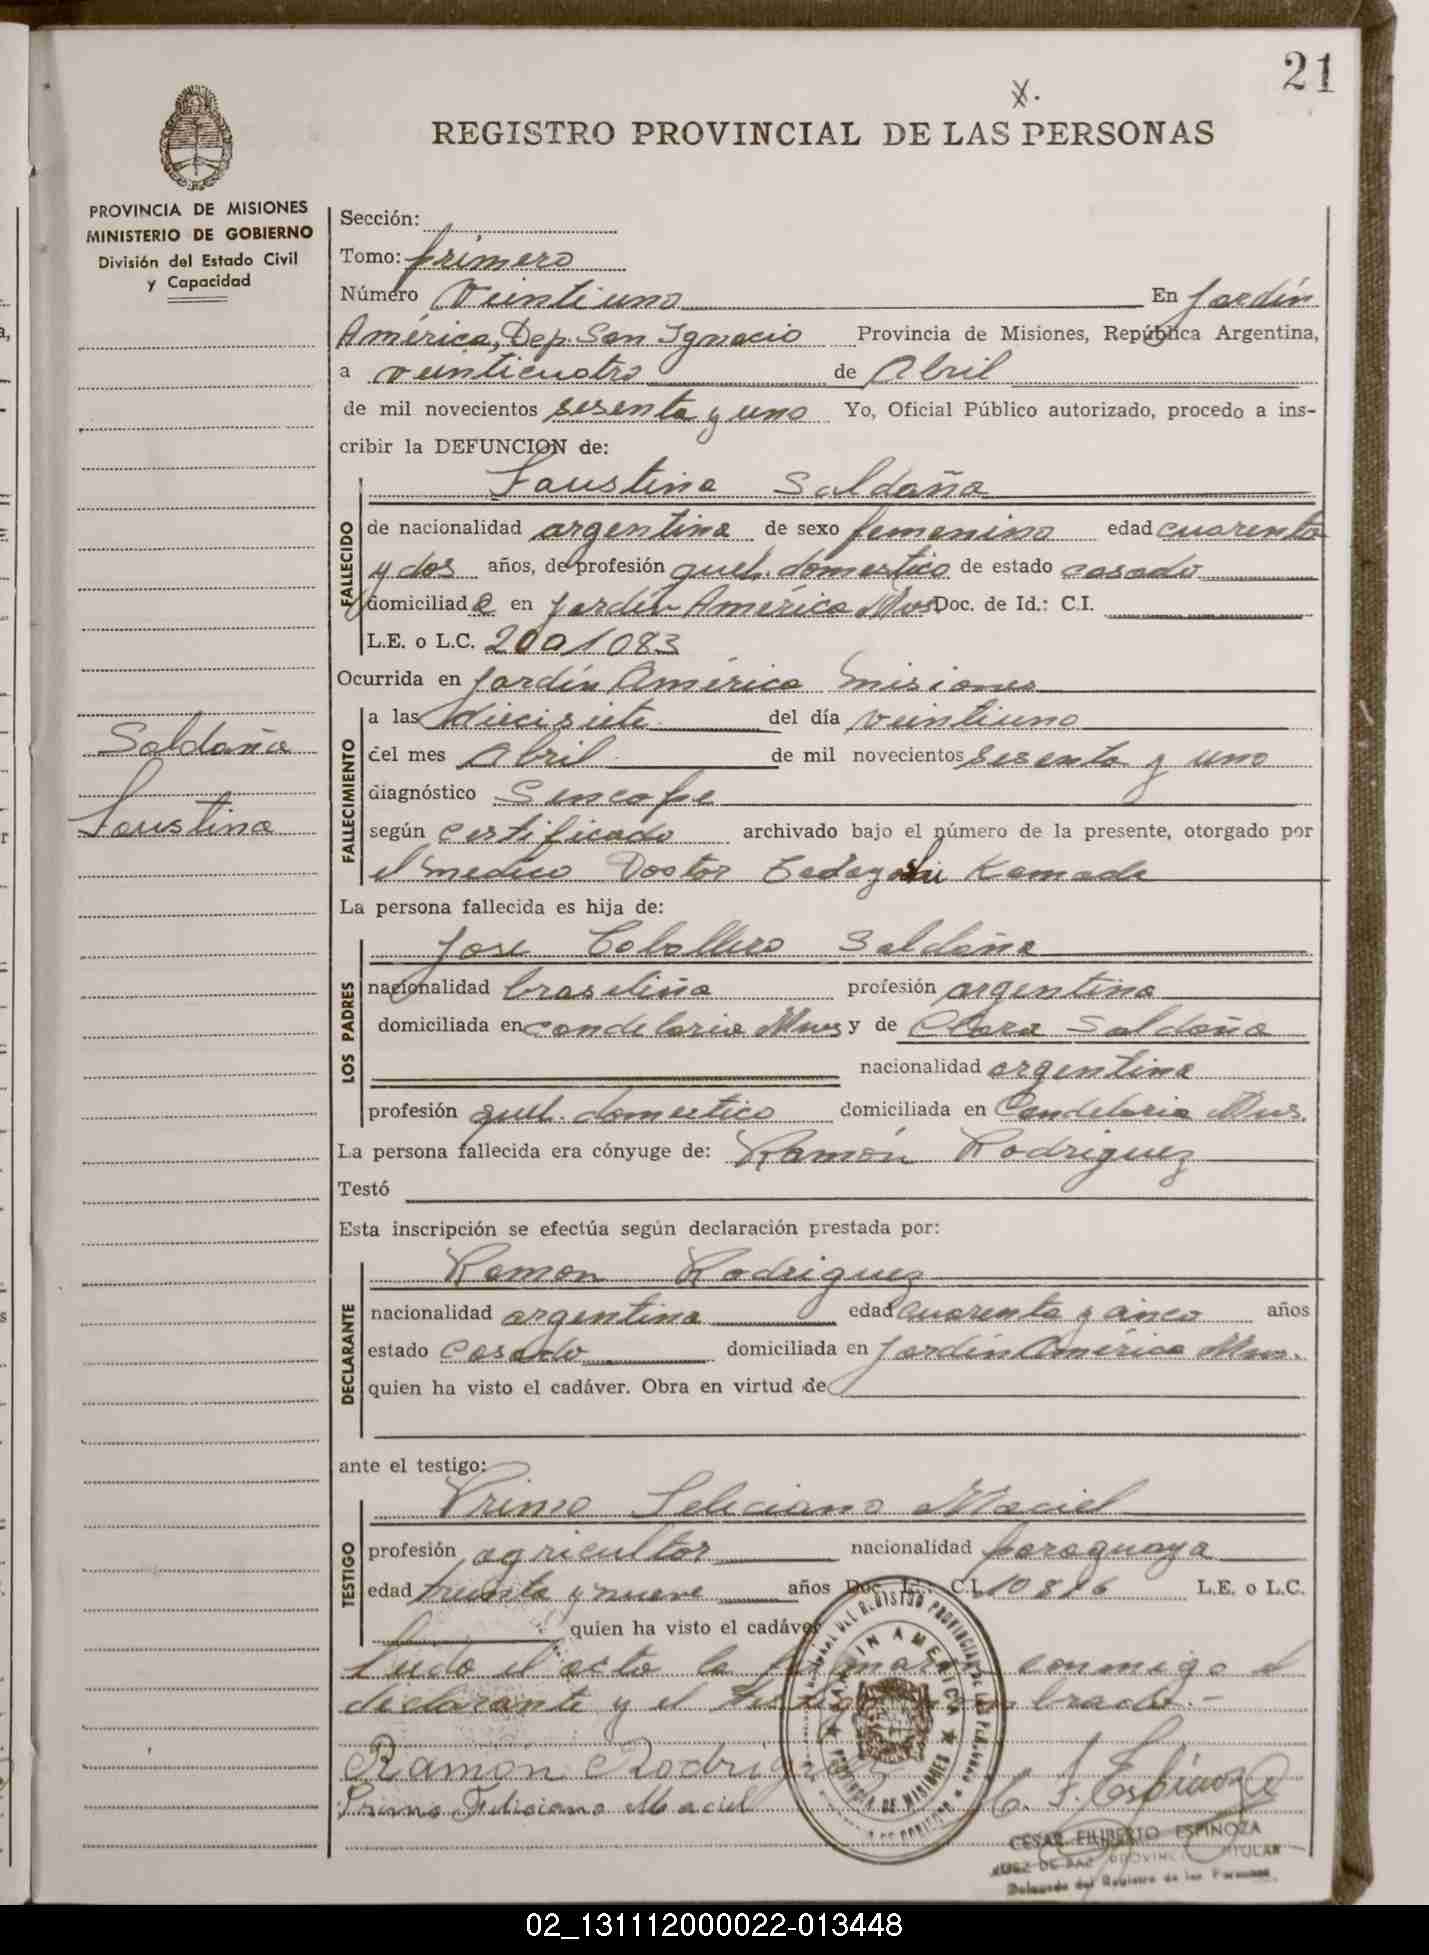 21
X.
REGISTRO PROVINCIAL DE LAS PERSONAS
PROVINCIA DE MISIONES
MINISTERIO DE GOBIERNO
División del Estado Civil
y Capacidad
Sección:
Tomo: primero
Número Veintiuno En Jardín
América, Dep. San Ignacio Provincia de Misiones, República Argentina,
a veinticuatro de Abril
de mil novecientos sesenta y uno Yo, Oficial Público autorizado, procedo a ins-
cribir la DEFUNCION de:
Faustina Saldaña
FALLECIDO
de nacionalidad argentina de sexo femenino edad cuarenta
y dos años, de profesión queh. domestico de estado casado
domiciliada en Jardín América Mnes Doc. de Id.: C.I.
L.E. o L.C. 2001083
Ocurrida en Jardín América Misiones
Saldaña
Faustina
FALLECIMIENTO
a las diecisiete del día veintiuno
del mes Abril de mil novecientos sesenta y uno
diagnóstico Sincope
según certificado archivado bajo el número de la presente, otorgado por
el medico Doctor Kamada
La persona fallecida es hija de:
José Caballero Saldaña
LOS PADRES
nacionalidad brasiliña profesión argentina
domiciliada en candelaria Mnes y de Clara Saldaña
nacionalidad argentina
profesión queh. domestico domiciliada en Candelaria Mnes.
La persona fallecida era cónyuge de: Ramón Rodriguez
Testó
Esta inscripción se efectúa según declaración prestada por:
Ramon Rodriguez
DECLARANTE
nacionalidad argentina edad cuarenta y cinco años
estado casado domiciliada en Jardín América Mnes.
quien ha visto el cadáver. Obra en virtud de
ante el testigo:
Primo Feliciano Maciel
TESTIGO
profesión agricultor nacionalidad paraguaya
edad treinta y nueve años Doc. Id.: C.I. 10816 L.E. o L.C.
quien ha visto el cadáver
Leido el acta la firmaron conmigo el
declarante y el testigo nombrado.-
Ramón Rodriguez
Primo Feliciano Maciel
C. F. Espinoza
JARDIN AMERICA
PROVINCIA DE MISIONES
CESAR FILIBERTO ESPINOZA
JUEZ DE PAZ PROVINCIAL TITULAR
Delegado del Registro de las Personas
02_131112000022-013448